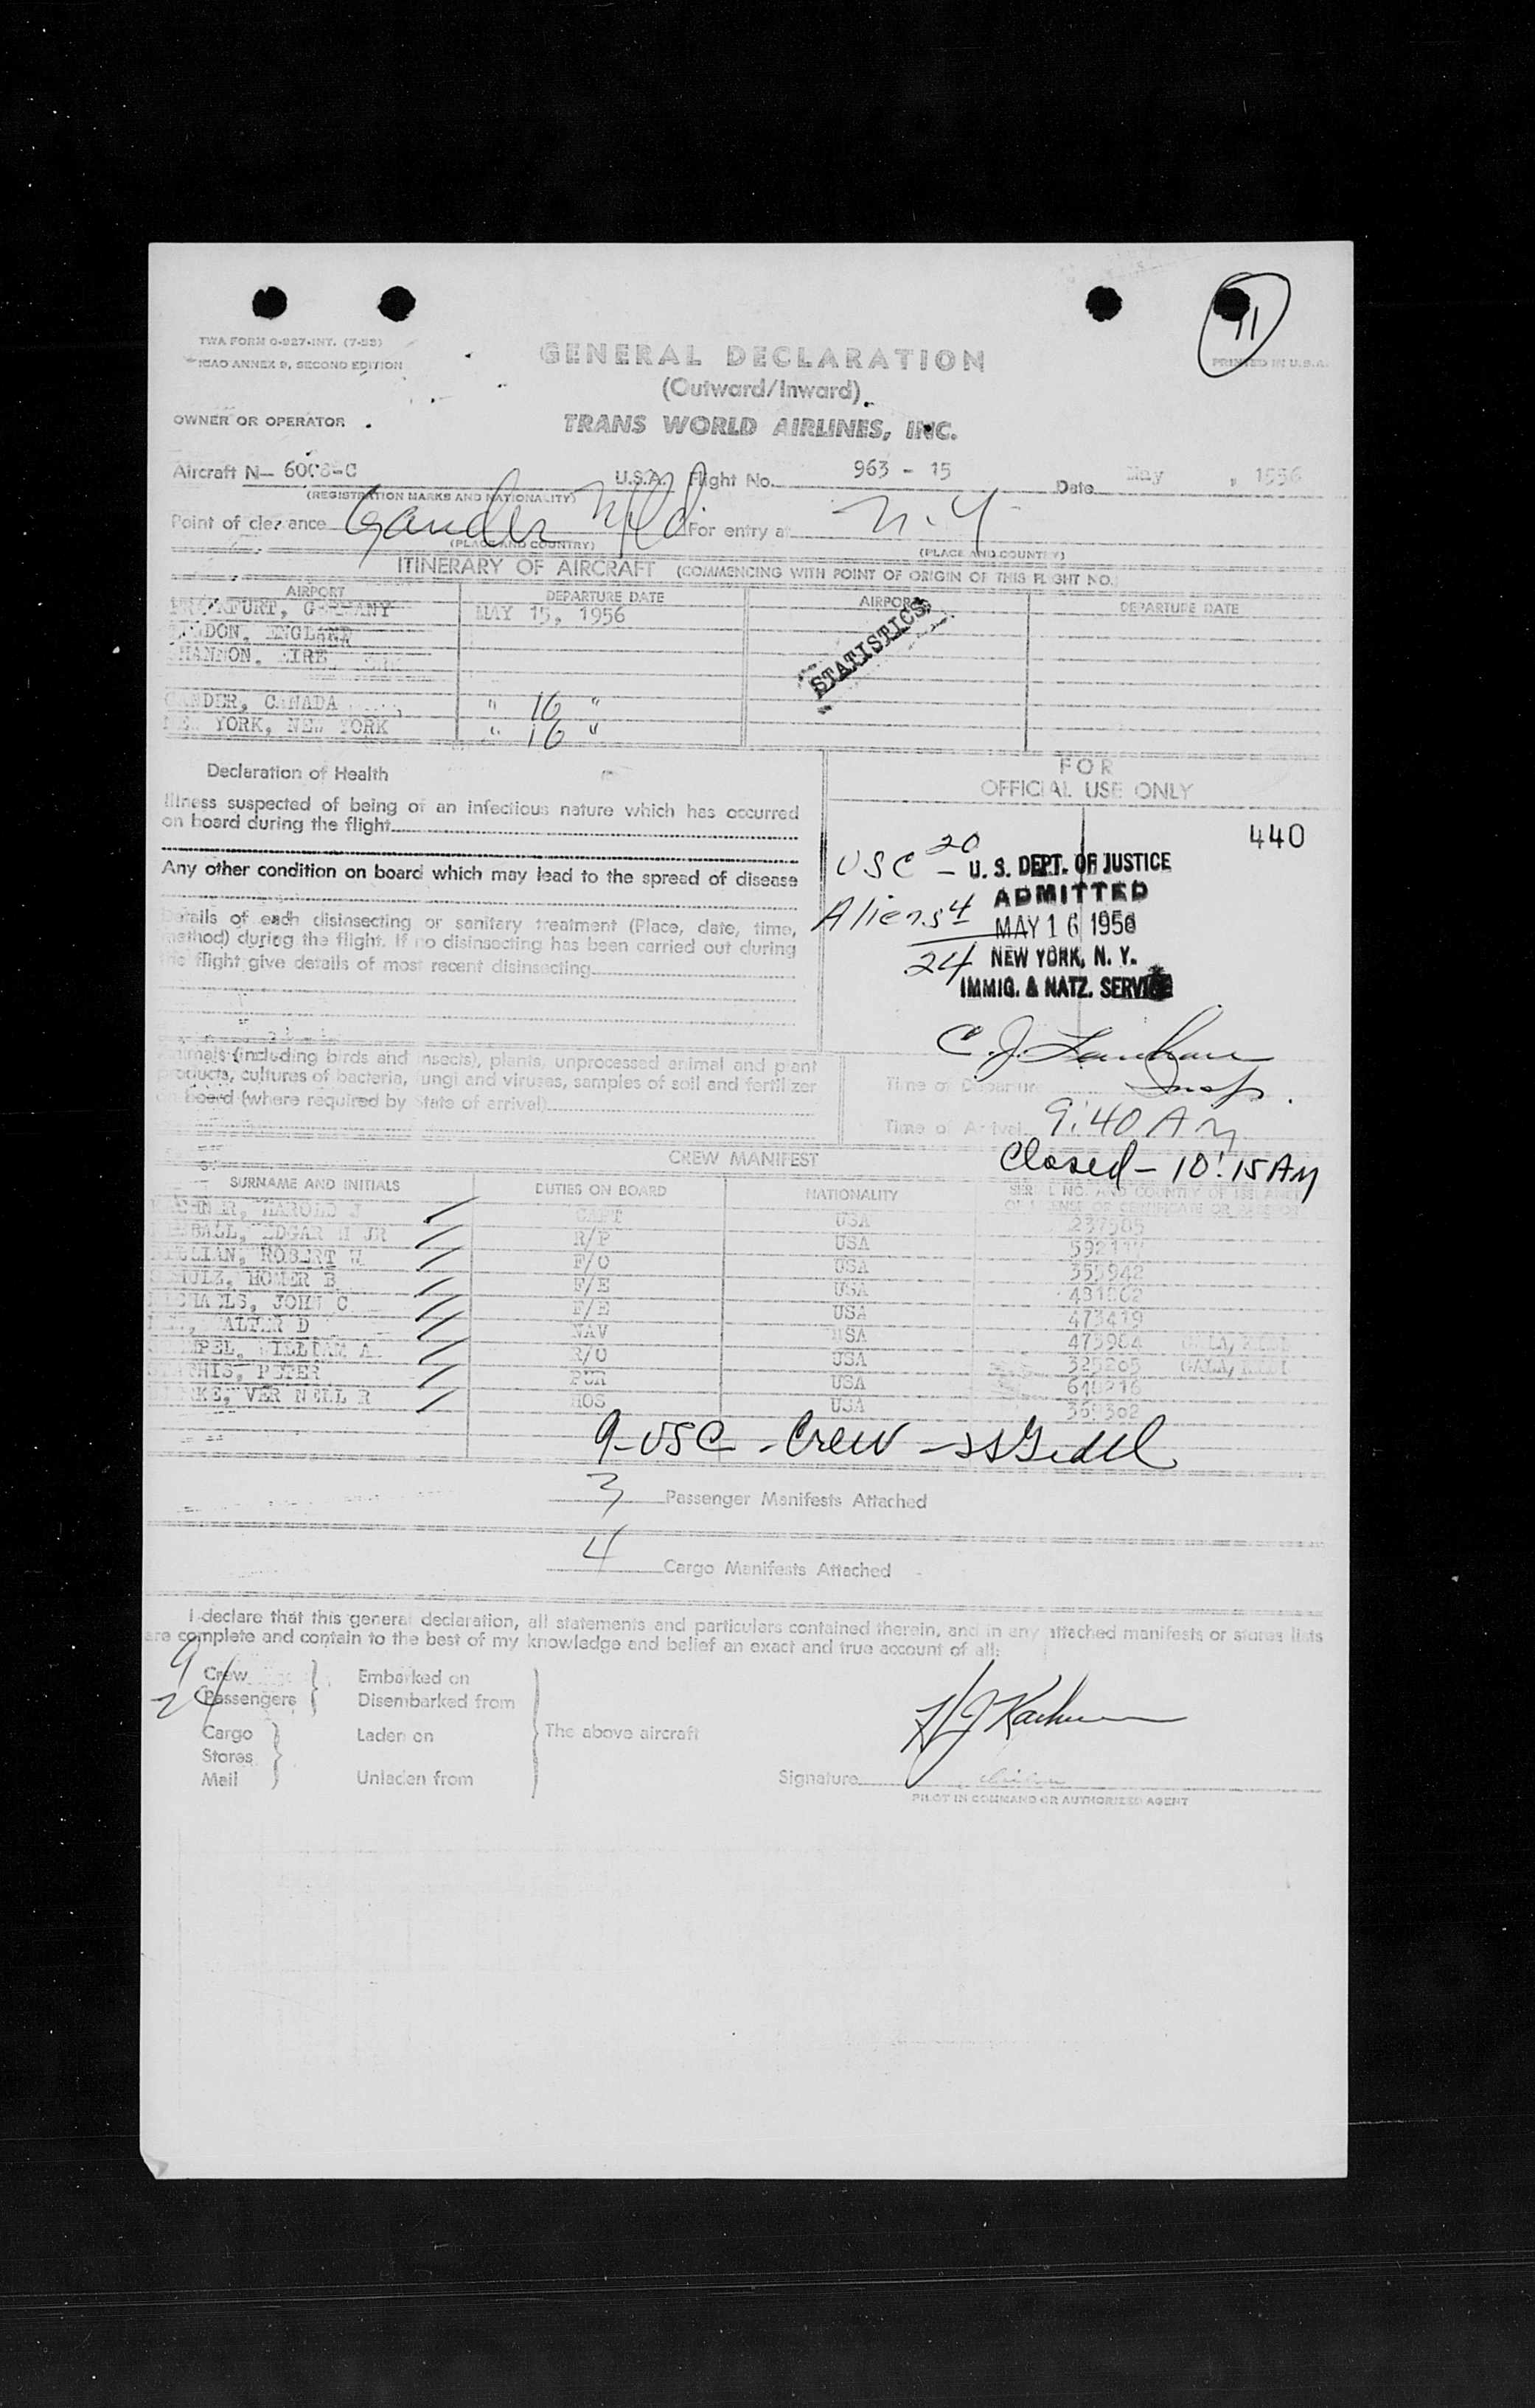 11
TWA FORM O-927-INT. (7-53)
ICAO ANNEX 9, SECOND EDITION
PRINTED IN U.S.A.
GENERAL DECLARATION
(Outward/Inward)
OWNER OR OPERATOR
TRANS WORLD AIRLINES, INC.
Aircraft N- U.S.A. Flight No. 963 - 15 Date May , 1956
(REGISTRATION MARKS AND NATIONALITY)
Point of clearance Gander Nfld For entry at N.Y.
(PLACE AND COUNTRY) (PLACE AND COUNTRY)
ITINERARY OF AIRCRAFT (COMMENCING WITH POINT OF ORIGIN OF THIS FLIGHT NO.)
AIRPORT DEPARTURE DATE AIRPORT DEPARTURE DATE
FRANKFURT, GERMANY MAY 15, 1956
LONDON, ENGLAND
SHANNON, EIRE
STATISTICS
GANDER, CANADA " 16 "
NEW YORK, NEW YORK " 16 "
Declaration of Health
FOR
OFFICIAL USE ONLY
Illness suspected of being of an infectious nature which has occurred
on board during the flight
440
Any other condition on board which may lead to the spread of disease
USC - 20
Aliens 4
24
U. S. DEPT. OF JUSTICE
ADMITTED
MAY 16 1956
NEW YORK, N. Y.
IMMIG. & NATZ. SERVICE
Details of each disinsecting or sanitary treatment (Place, date, time,
method) during the flight. If no disinsecting has been carried out during
the flight give details of most recent disinsecting
C. J.
Insp.
Animals (including birds and insects), plants, unprocessed animal and plant
products, cultures of bacteria, fungi and viruses, samples of soil and fertilizer
on board (where required by State of arrival)
Time of Departure
Time of Arrival 9:40 AM
Closed - 10:15 AM
CREW MANIFEST
SURNAME AND INITIALS DUTIES ON BOARD NATIONALITY SERIAL NO. AND COUNTRY OF ISSUANCE
OF LICENSE OR CERTIFICATE OR PASSPORT
HAROLD J CAPT USA 237585
EDGAR H JR R/P USA
ROBERT W F/O USA 355942
HOMER B F/E USA
MICHAELS, JOHN C F/E USA 473419
WALTER D NAV USA 475984
WILLIAM A R/O USA 325205
PETER PUR USA 640216
VER NELL R HOS USA
9 - USC - Crew -
3 Passenger Manifests Attached
4 Cargo Manifests Attached
I declare that this general declaration, all statements and particulars contained therein, and in any attached manifests or stores lists
are complete and contain to the best of my knowledge and belief an exact and true account of all:
9 Crew Embarked on
24 Passengers Disembarked from
Cargo Laden on The above aircraft
Stores
Mail Unladen from
Signature
PILOT IN COMMAND OR AUTHORIZED AGENT